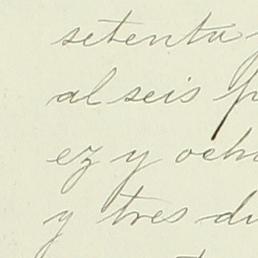 setenta y
al seis
ez y ocho
y tres du